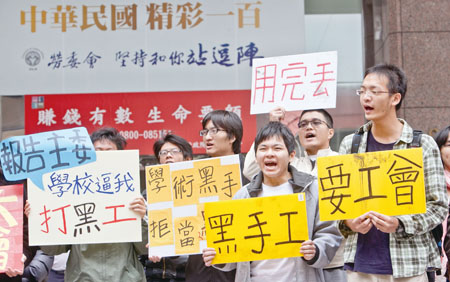 中華民國 精彩一百
勞委會 堅持和你站逗陣
賺錢有數 生命要顧
0800-085
用完丟
報告主委
學校逼我
打黑工
學術黑手
拒當
黑手工
要工會